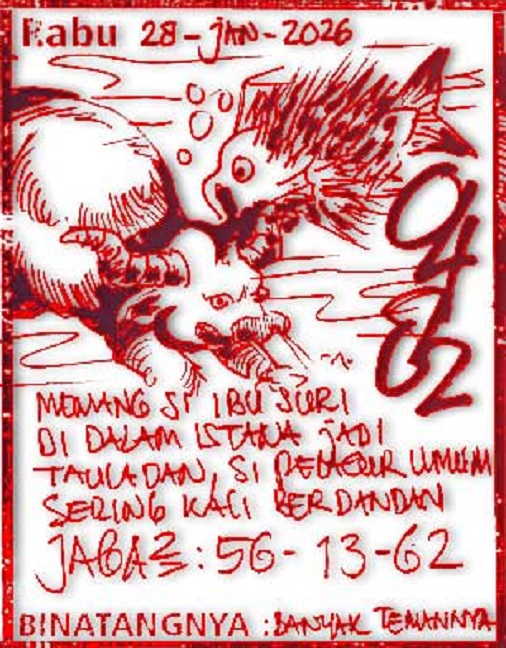 Rabu 28-JAN-2026
04
62
MEMANG SI IBU SURI
DI DALAM ISTANA JADI
TAULADAN, SI PELACUR UMUM
SERING KALI BERDANDAN
JAGA2 : 56 - 13 - 62
BINATANGNYA : BANYAK TEMANNYA